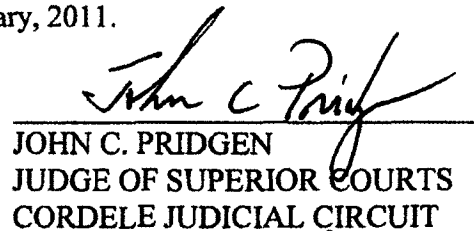 ary, 2011.
John C Pridgen
JOHN C. PRIDGEN
JUDGE OF SUPERIOR COURTS
CORDELE JUDICIAL CIRCUIT